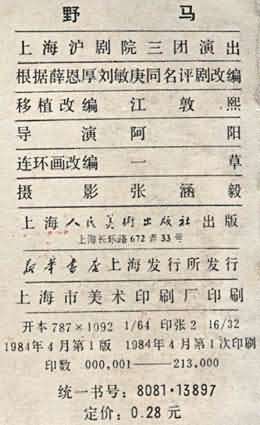 野马
上海沪剧院三团演出
根据薛恩厚刘敏庚同名评剧改编
移植改编 江敦熙
导演 阿阳
连环画改编 一草
摄影 张涵毅
上海人民美术出版社出版
上海长乐路672弄33号
新华书店上海发行所发行
上海市美术印刷厂印刷
开本787×1092 1/64 印张2 16/32
1984年4月第1版 1984年4月第1次印刷
印数 000,001——213,000
统一书号：8081·13897
定价：0.28元